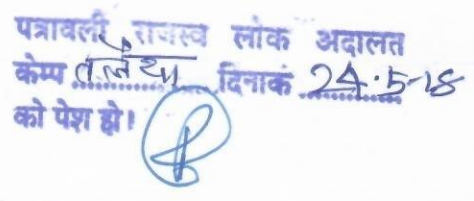 पत्रावली राजस्व लोक अदालत
केम्प ............ दिनांक 24.5-18
को पेश हो।